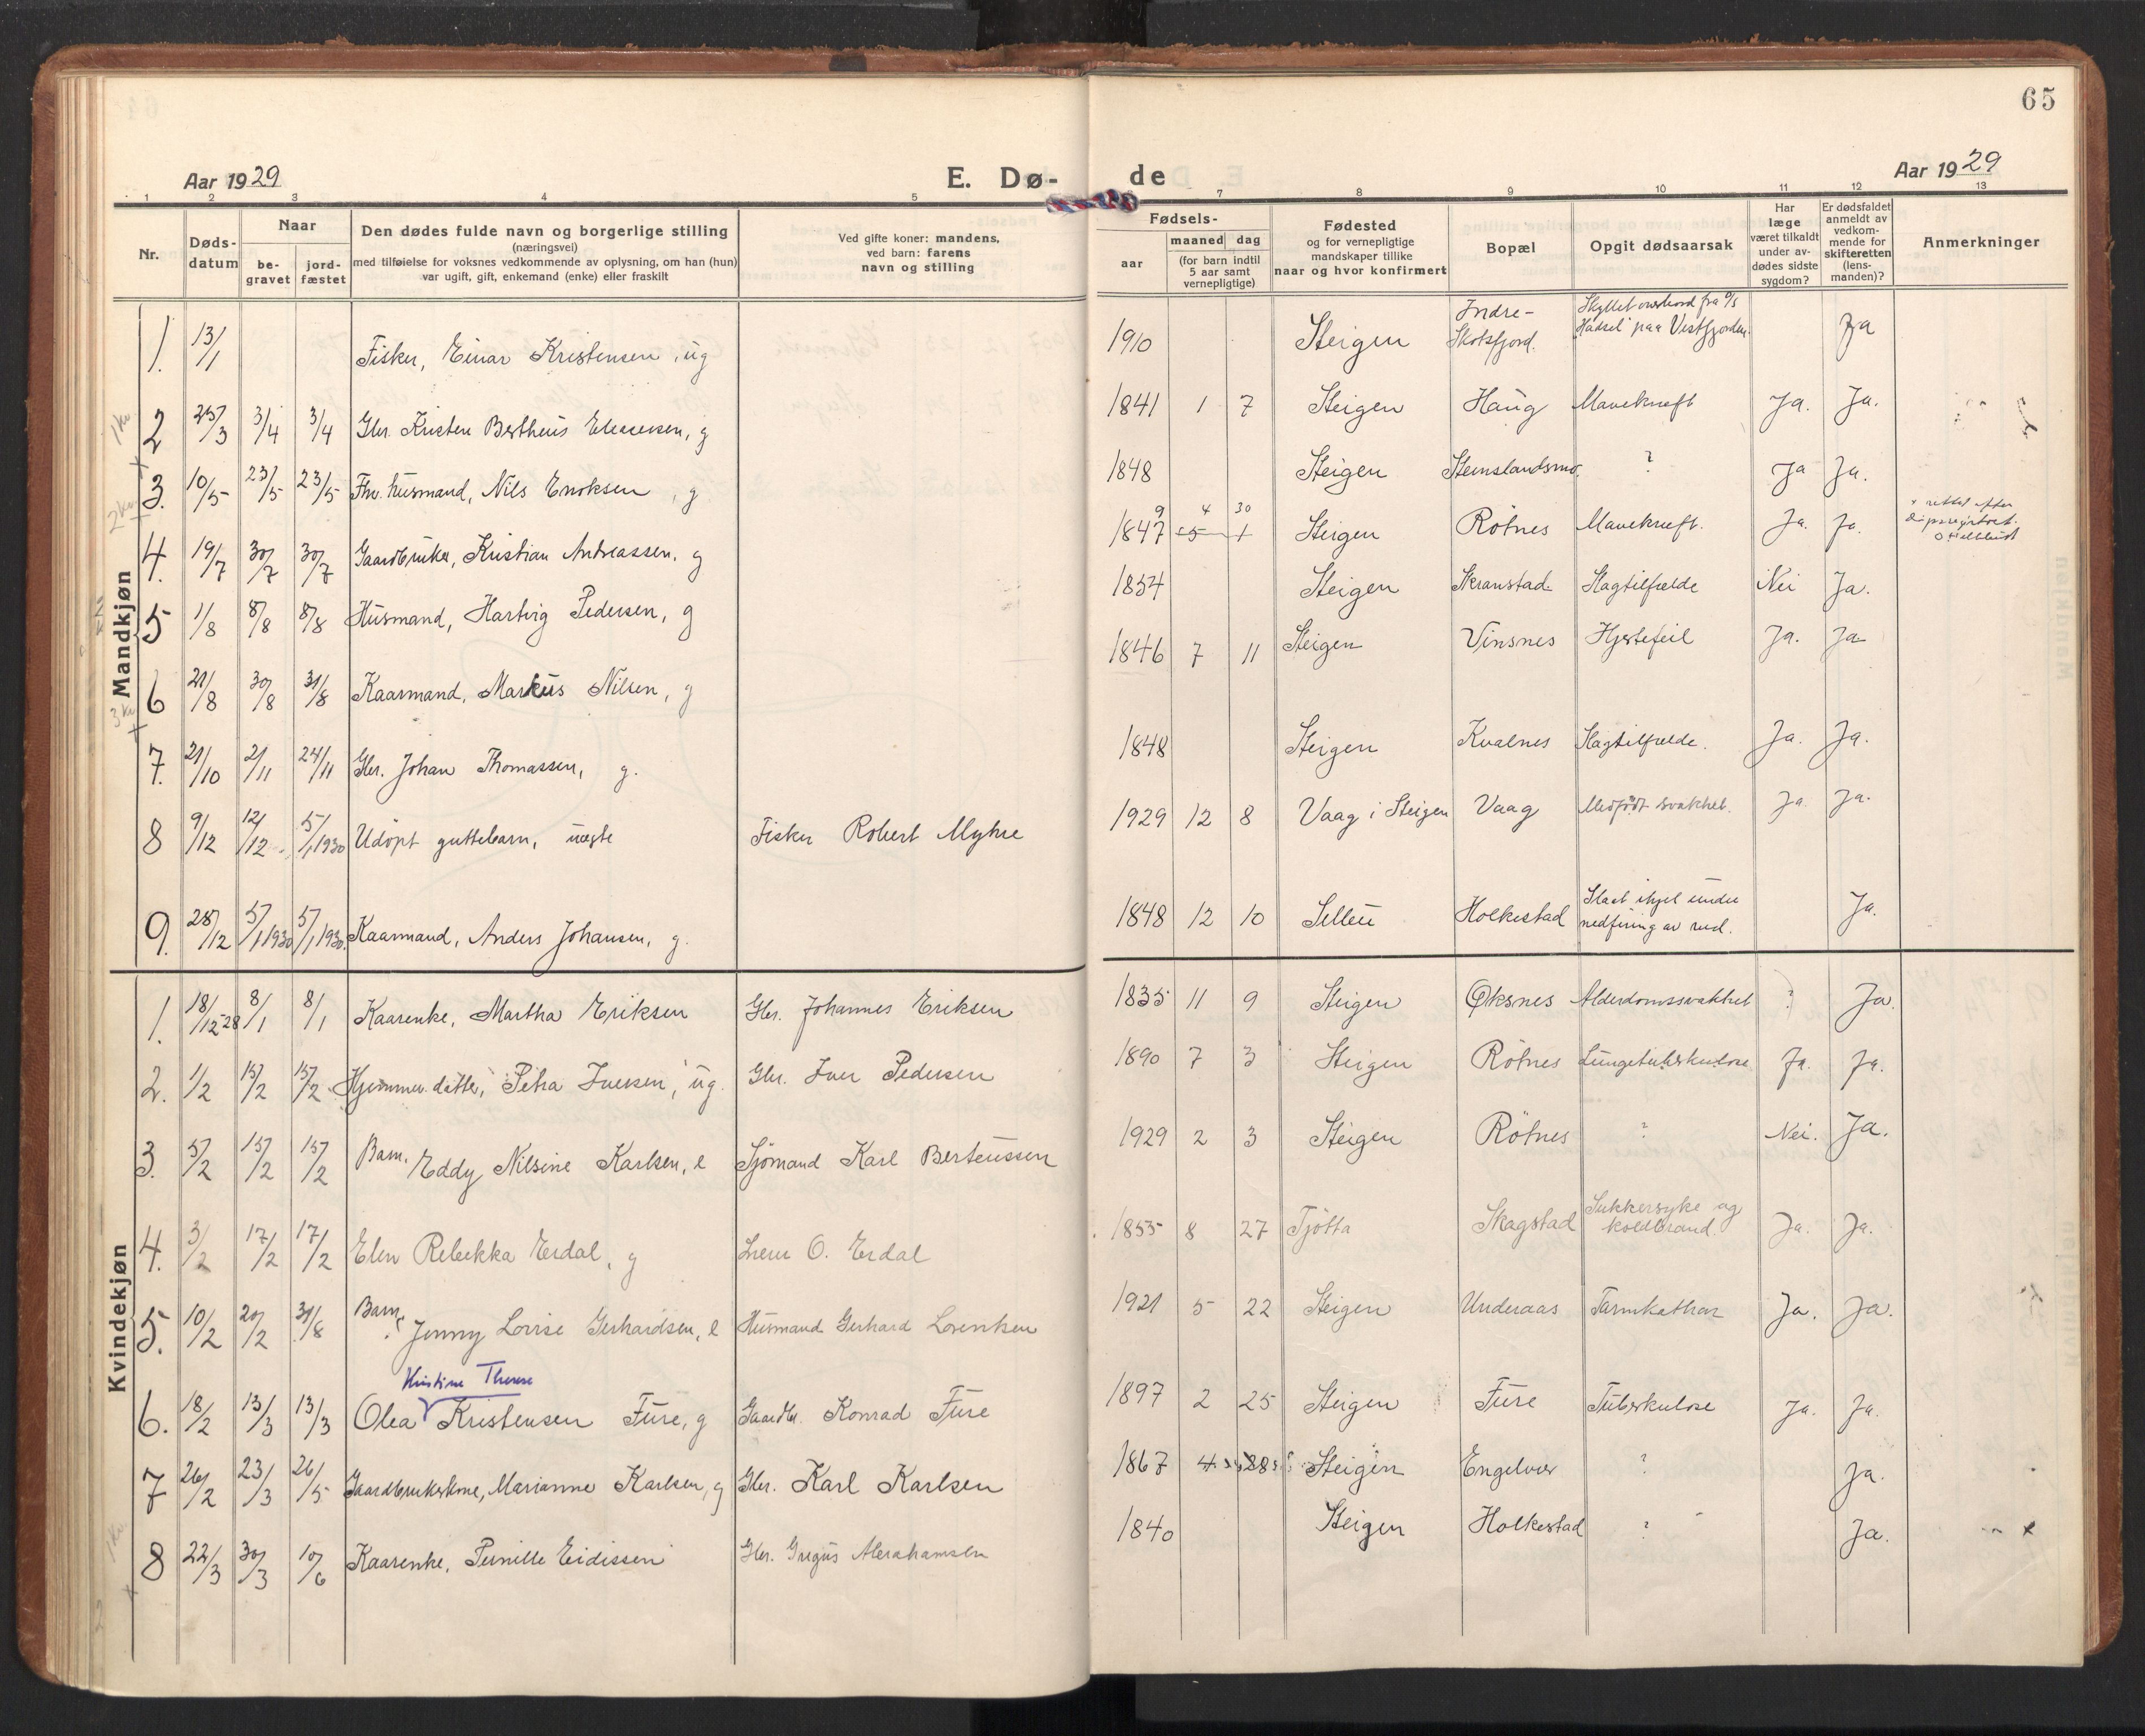 65
Aar 1929
E. Dø-
de
Aar 1929
1 2 3 4 5 7 8 9 10 11 12 13
Nr.
Døds-
datum
Naar
be-
gravet
jord-
fæstet
Den dødes fulde navn og borgerlige stilling
(næringsvei)
med tilføielse for voksnes vedkommende av oplysning, om han (hun)
var ugift, gift, enkemand (enke) eller fraskilt
Ved gifte koner: mandens,
ved barn: farens
navn og stilling
Fødsels-
aar
maaned dag
(for barn indtil
5 aar samt
vernepligtige)
Fødested
og for vernepligtige
mandskaper tillike
naar og hvor konfirmert
Bopæl
Opgit dødsaarsak
Har
læge
været tilkaldt
under av-
dødes sidste
sygdom?
Er dødsfaldet
anmeldt av
vedkom-
mende for
skifteretten
(lens-
manden)?
Anmerkninger
Mandkjøn
1. 13/1 Fisker, Einar Kristensen, ug 1910 Steigen Indre-Skotsfjord. Skyllet overbord fra o/s "Hadsel" paa Vestfjorden. Ja
2 25/3 3/4 3/4 Gbr. Kristen Bertheus g 1841 1 7 Steigen Haug Mavekræft Ja. Ja.
3. 10/5 23/5 23/5 Fhv. husmand, Nils Enoksen, g 1848 Steigen Steinslandsmo. ? Ja Ja.
4. 19/7 30/7 30/7 Gaardbruker, Kristian Andreassen, g 1847 9 5 1 4 30 Steigen Rötnes Mavekræft. Ja. Ja. x rettet efter
5 1/8 8/8 8/8 Husmand, Hartvig Pedersen, g 1854 Steigen Skranstad Slagtilfælde Nei Ja.
6 21/8 30/8 31/8 Kaarmand, Markus Nilsen, g 1846 7 11 Steigen Vinsnes Hjertefeil Ja. Ja
7. 21/10 2/11 24/11 Gbr. Johan Thomassen, g. 1848 Steigen Kvalnes Slagtilfælde. Ja. Ja.
8 9/12 12/12 5/1 1930 Udöpt guttebarn, uægte Fisker Robert Myhre 1929 12 8 Vaag i Steigen Vaag Medfödt svakhet. Ja Ja.
9. 28/12 5/1 1930 5/1 1930. Kaarmand, Anders Johansen, g. 1848 12 10 Holkestad Slaat ihjel under nedfiring av ved. Ja.
Kvindekjøn
1. 18/12-28 8/1 8/1 Kaarenke, Martha Eriksen Gbr. Johannes Eriksen 1835 11 9 Steigen Øksnes Alderdomssvakhet ? Ja.
2. 1/2 15/2 15/2 Hjemmev. datter, Petra Iversen, ug. Gbr. Iver Pedersen 1890 7 3 Steigen Rötnes Lungetuberkulose Ja. Ja.
3. 5/2 15/2 15/2 Barn. Eddy Nilsine Karlsen, e Sjömand Karl Berteussen 1929 2 3 Steigen Rötnes ? Nei. Ja.
4. 3/2 17/2 17/2 Elen Rebekka Erdal, g O. Erdal 1855 8 27 Tjötta Skagstad Sukkersyke og koldbrand. Ja. Ja.
5. 10/2 20/2 31/8 Barn, Jenny Lovise Gerhardsen, e Husmand Gerhard Lorentsen 1921 5 22 Steigen Underaas Tarmkathar Ja. Ja.
Kristine Therese
6. 18/2 13/3 13/3 Olea Kristensen Fure, g Gaardbr. Konrad Fure 1897 2 25 Steigen Fure Tuberkulose Ja. Ja.
7 26/2 23/3 26/5 Gaardbrukerkone, Marianne Karlsen, g Gbr. Karl Karlsen 1867 4 28 Steigen Engelvær ? Ja.
8 22/3 30/3 10/6 Kaarenke, Pernille Eidissen Gbr. Gregus Abrahamsen 1840 Steigen Holkestad ? Ja.